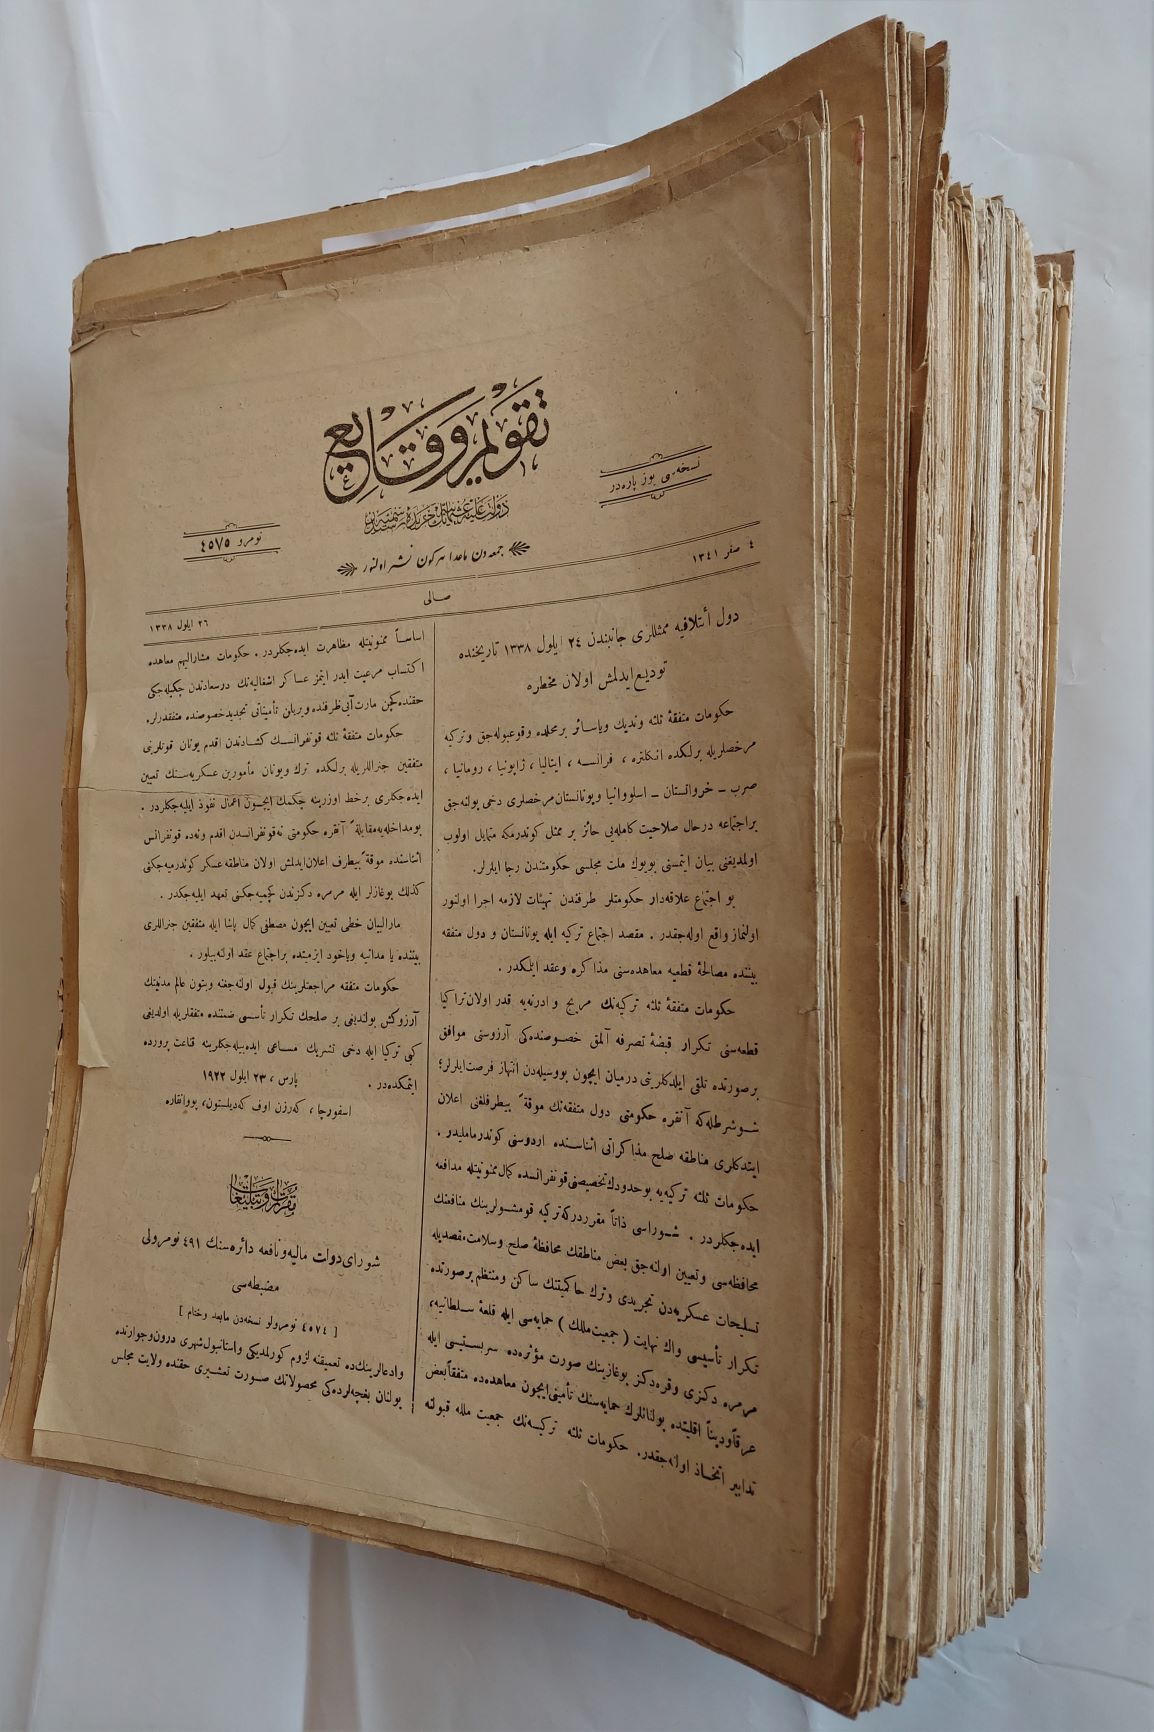 تقويم وقايع
نسخه‌سى يوز پاره‌در
دولت عليهٔ عثمانيه‌نك جريدهٔ رسميه‌سيدر
نومرو ٤٥٧٥
جمعه‌دن ماعدا هركون نشر اولنور
٤ صفر ١٣٤١
صالى
٢٦ ايلول ١٣٣٨
دول أئتلافيه ممثللرى جانبندن ٢٤ ايلول ١٣٣٨ تاريخنده
توديع ايدلمش اولان مخطره
حكومات متفقهٔ ثلثه ونديك وياسائر برمحلده وقوعبوله‌جق وتركيه
مرخصلريله برلكده انكلتره ، فرانسه ، ايتاليا ، ژاپونيا ، رومانيا ،
صرب ـ خرواتستان ـ اسلووانيا ويونانستان مرخصلرى دخى بولنه‌جق
براجتماعه درحال صلاحيت كامله‌يى حائز بر ممثل كوندرمكه متمايل اولوب
اولمديغنى بيان ايتمسنى بويوك ملت مجلسى حكومتندن رجا ايلرلر.
بو اجتماع علاقه‌دار حكومتلر طرفندن تهيئات لازمه اجرا اولنور
اولنماز واقع اوله‌جقدر . مقصد اجتماع تركيه ايله يونانستان و دول متفقه
بيننده مصالحهٔ قطعيه معاهده‌سنى مذاكره وعقد ايتمكدر .
حكومات متفقهٔ ثلثه تركيه‌نك مريج و ادرنه‌يه قدر اولان تراكيا
قطعه‌سنى تكرار قبضهٔ تصرفه آلمق خصوصنده‌كى آرزوسنى موافق
برصورتده تلقى ايلدكلرينى درميان ايچون بووسيله‌دن انتهاز فرصت ايلرلر؛
شو شرطله‌كه آنقره حكومتى دول متفقه‌نك موقةً بيطرفلغنى اعلان
ايتدكلرى مناطقه صلح مذاكراتى اثناسنده اردوسنى كوندرمامليدر .
حكومات ثلثه تركيه‌يه بوحدودك تخصيصنى قونفرانسده كمال ممنونيتله مدافعه
ايده‌جكلردر . شوراسى ذاتاً مقرردركه تركيه قومشولرينك منافعنك
محافظه‌سى وتعيين اولنه‌جق بعض مناطقك محافظهٔ صلح وسلامت مقصديله
تسليحات عسكريه‌دن تجريدى وترك حاكميتنك ساكن ومنتظم برصورتده
تكرار تأسيسى واك نهايت ( جمعيت ملل ) حمايه‌سى ايله قلعهٔ سلطانيه،
مرمره دكزى وقره‌دكز بوغازينك صورت مؤثره‌ده سربستيسى ايله
عرقاً وديناً اقليتده بولنانلرك حمايه‌سنك تأمينى ايچون معاهده‌ده متفقاً بعض
تدابير اتخاذ اولنه‌جقدر. حكومات ثلثه تركيه‌نك جمعيت ملله قبولنه
اساساً ممنونيتله مظاهرت ايده‌جكلردر . حكومات مشاراليهم معاهده
اكتساب مرعيت ايدر ايتمز عساكر اشغاليه‌نك درسعادتدن چكيله‌جكى
حقنده كچن مارت آيى ظرفنده ويريلن تأميناتى تجديد خصوصنده متفقدرلر.
حكومات متفقهٔ ثلثه قونفرانسك كشادندن اقدم يونان قوتلرينى
متفقين جنراللريله برلكده ترك ويونان مأمورين عسكريه‌سنك تعيين
ايده‌جكلرى برخط اوزرينه چكمك ايچون اعمال نفوذ ايليه‌جكلردر .
بومداخله‌يه مقابلةً آنقره حكومتى نه قونفرانسدن اقدم ونه‌ده قونفرانس
اثناسنده موقةً بيطرف اعلان ايدلمش اولان مناطقه عسكر كوندرميه‌جكنى
كذلك بوغازلر ايله مرمره دكزندن كچميه‌جكنى تعهد ايليه‌جكدر .
مارالبيان خطى تعيين ايچون مصطفى كمال پاشا ايله متفقين جنراللرى
بيننده يا مدانيه وياخود ازميتده براجتماع عقد اولنه‌بيلور .
حكومات متفقه مراجعتلرينك قبول اولنه‌جغنه وبتون عالم مدنيتك
آرزوكش بولنديغى بر صلحك تكرار تأسسى ضمننده متفقلريله اولديغى
كبى تركيا ايله دخى تشريك مساعى ايده‌بيله‌جكلرينه قناعت پرورده
ايتمكده‌در . پارس ، ٢٣ ايلول ١٩٢٢
اسفورچا ، كه‌رزن اوف كه‌دلستون، پووانقاره
مقررات وتبليغات
شوراى دولت ماليه ونافعه دائره‌سنك ٤٩١ نومرولى
مضبطه‌سى
[ ٤٥٧٤ نومرولو نسخه‌دن مابعد وختام ]
وادعالرينك‌ده تعميقنه لزوم كورلمديكى واستانبول شهرى درون وجوارنده
بولنان بغچه‌لرده‌كى محصولاتك صورت تعشيرى حقنده ولايت مجلس